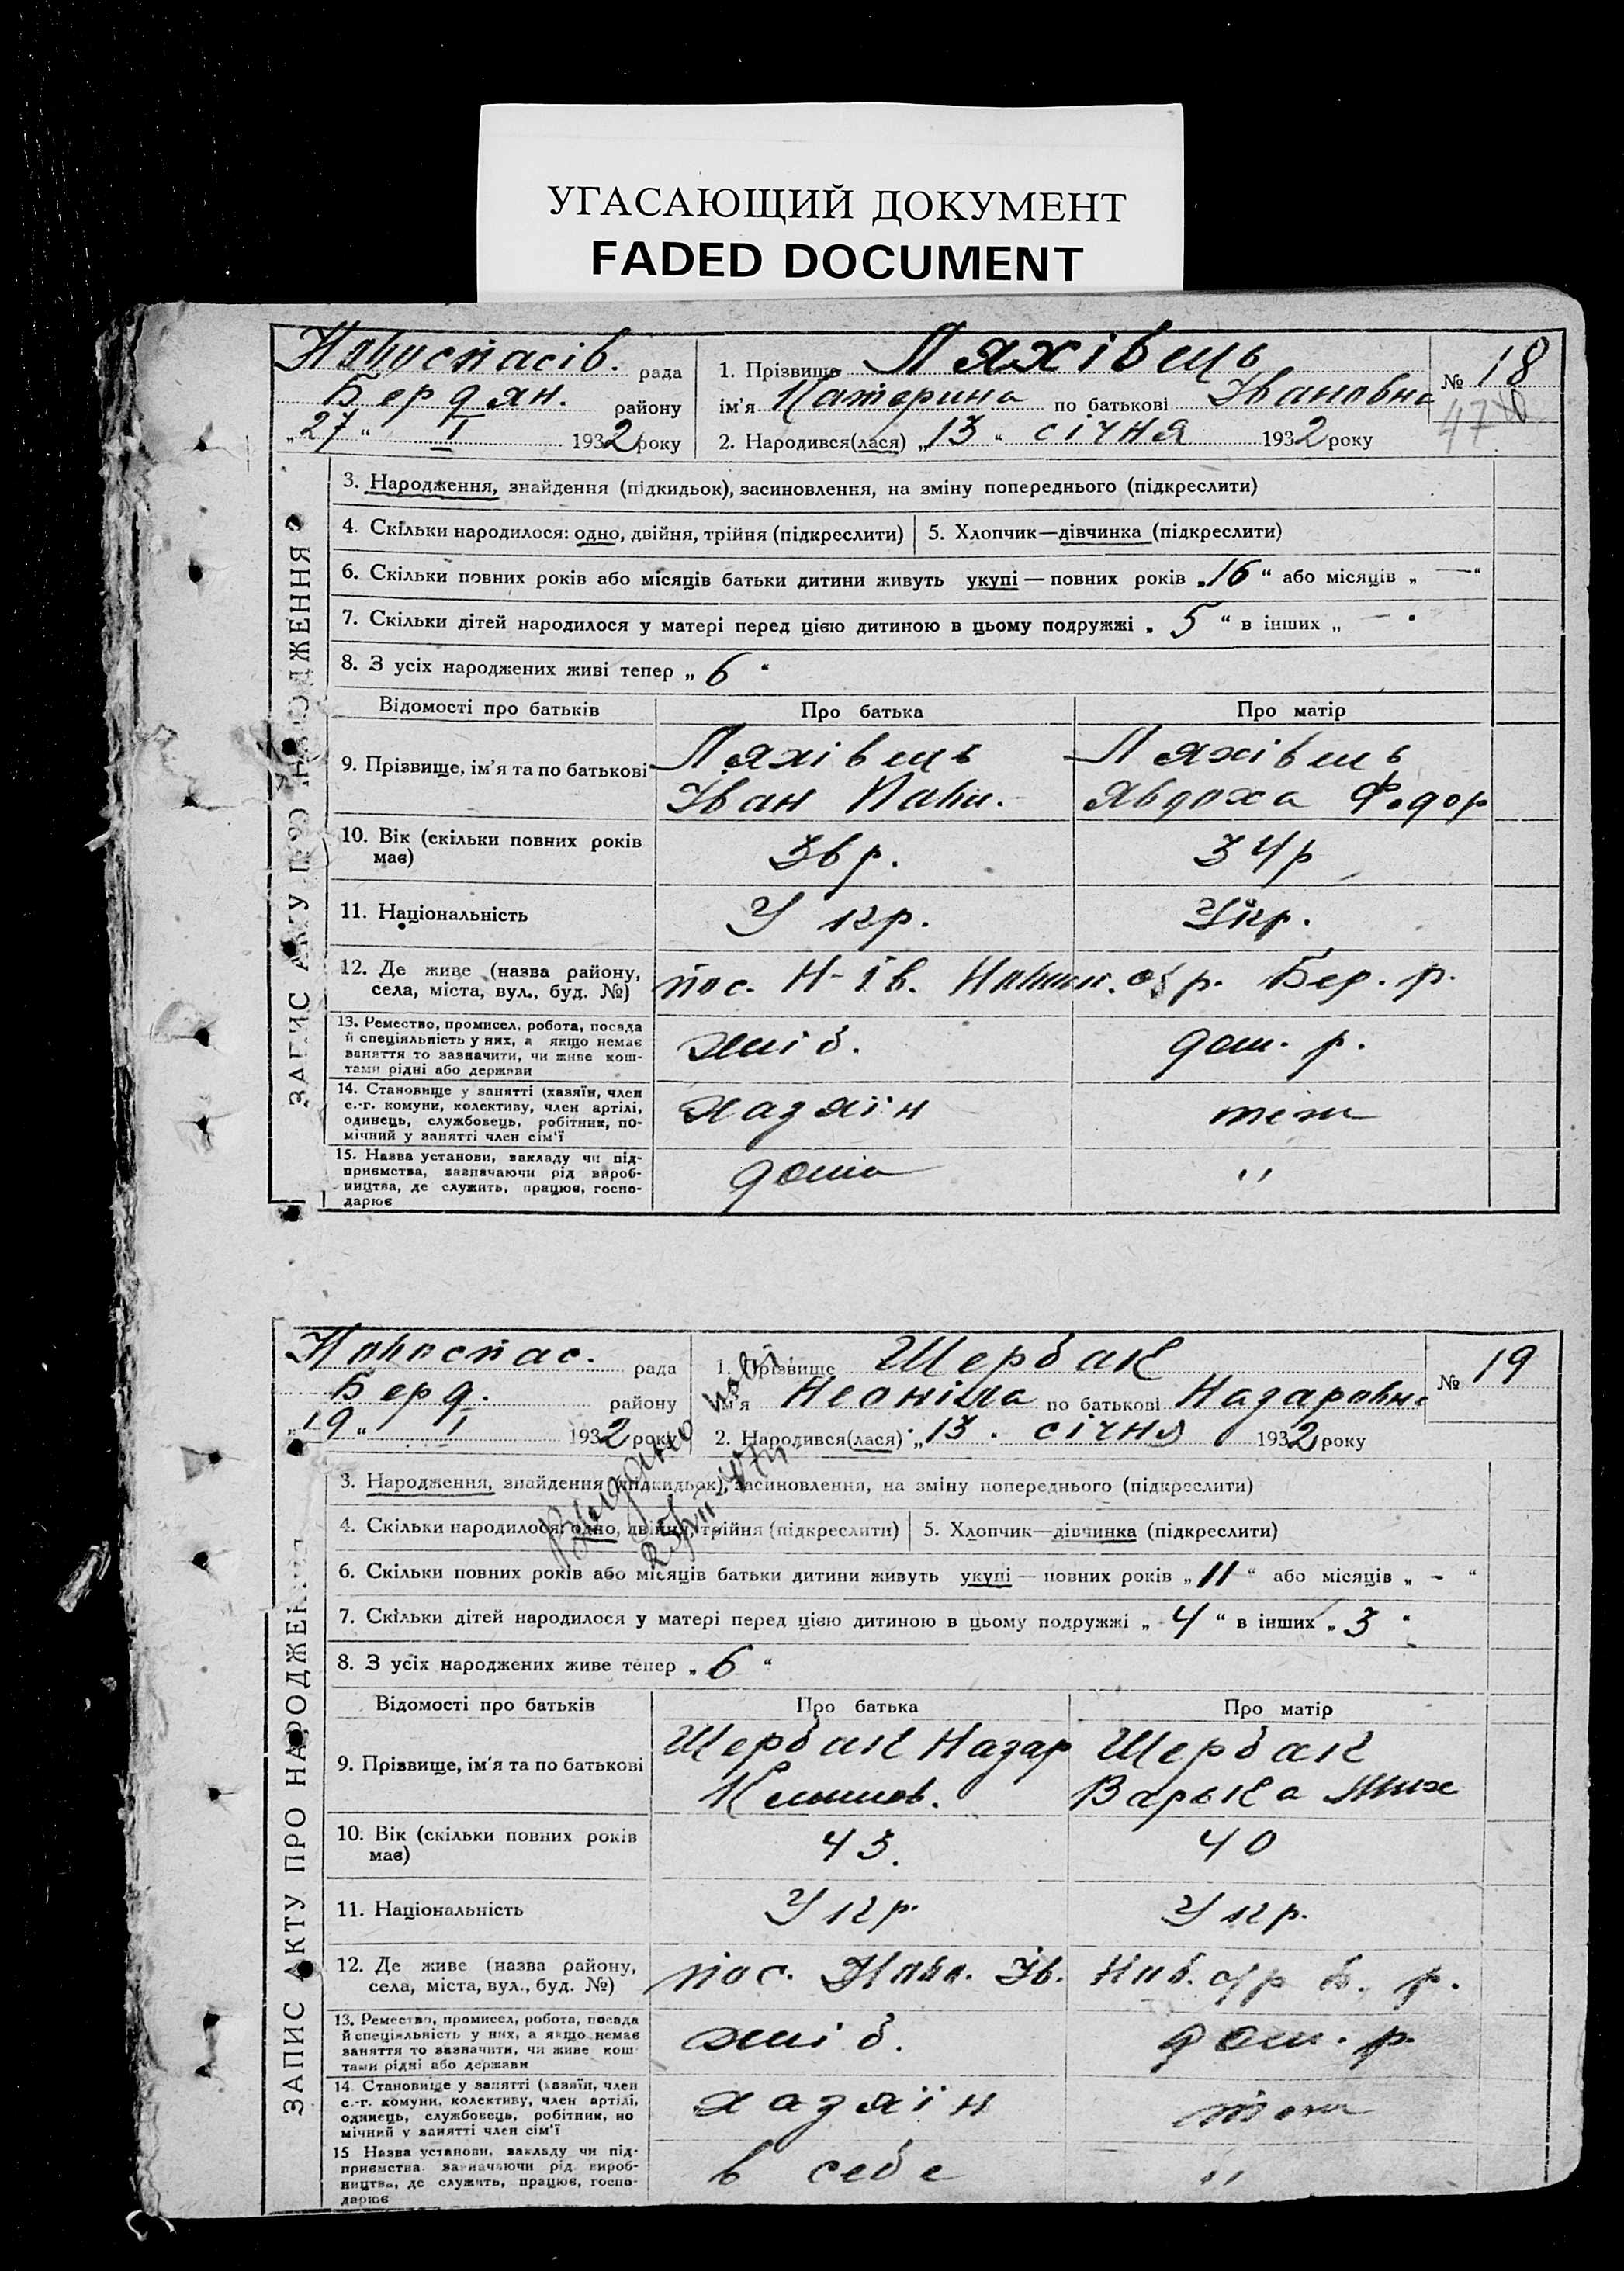 УГАСАЮЩИЙ ДОКУМЕНТ
FADED DOCUMENT
ЗАПИС АКТУ ПРО НАРОДЖЕННЯ
Новоспасів. рада
Бердян. району
„27“ I 1932 року
1. Прізвище Ляхівець
ім'я Катерина по батькові Івановна
2. Народився(лася) „13“ січня 1932 року
№ 18
47
3. Народження, знайдення (підкидьок), засиновлення, на зміну попереднього (підкреслити)
4. Скільки народилося: одно, двійня, трійня (підкреслити)
5. Хлопчик—дівчинка (підкреслити)
6. Скільки повних років або місяців батьки дитини живуть укупі — повних років „16“ або місяців „—“
7. Скільки дітей народилося у матері перед цією дитиною в цьому подружжі „5“ в інших „—“
8. З усіх народжених живі тепер „6“
Відомості про батьків
Про батька
Про матір
9. Прізвище, ім'я та по батькові
Ляхівець
Іван
Ляхівець
Явдоха Федор
10. Вік (скільки повних років має)
36 р.
34 р
11. Національність
Укр.
Укр.
12. Де живе (назва району,
села, міста, вул., буд. №)
пос. Н-Ів. с/р. Бер. р.
13. Ремество, промисел, робота, посада
й спеціяльність у них, а якщо немає
заняття то зазначити, чи живе кош-
тами рідні або держави
хліб.
дом. р.
14. Становище у занятті (хазяїн, член
с.-г. комуни, колективу, член артілі,
одинець, службовець, робітник, по-
мічний у занятті член сім'ї
хазяїн
теж
15. Назва установи, закладу чи під-
приємства, зазначаючи рід вироб-
ництва, де служить, працює, госпо-
дарює
дома
"
ЗАПИС АКТУ ПРО НАРОДЖЕННЯ
Новоспас. рада
Берд. району
„19“ I 1932 року
1. Прізвище Щербак
ім'я Неоніла по батькові Назаровна
2. Народився(лася) „13“ січня 1932 року
№ 19
Видано
3. Народження, знайдення (підкидьок), засиновлення, на зміну попереднього (підкреслити)
4. Скільки народилося: одно, двійня, трійня (підкреслити)
5. Хлопчик—дівчинка (підкреслити)
6. Скільки повних років або місяців батьки дитини живуть укупі — повних років „11“ або місяців „-“
7. Скільки дітей народилося у матері перед цією дитиною в цьому подружжі „4“ в інших „3“
8. З усіх народжених живе тепер „6“
Відомості про батьків
Про батька
Про матір
9. Прізвище, ім'я та по батькові
Щербак Назар
Щербак
Варька Мих
10. Вік (скільки повних років має)
43
40
11. Національність
Укр.
Укр.
12. Де живе (назва району,
села, міста, вул., буд. №)
пос. Ново. Ів. Нов. с/р Б. р.
13. Ремество, промисел, робота, посада
й спеціяльність у них, а якщо немає
заняття то зазначити, чи живе кош-
тами рідні або держави
хліб.
дом. р.
14. Становище у занятті (хазяїн, член
с.-г. комуни, колективу, член артілі,
одинець, службовець, робітник, по-
мічний у занятті член сім'ї
хазяїн
теж
15 Назва установи, закладу чи під-
приємства, зазначаючи рід вироб-
ництва, де служить, працює, госпо-
дарює
в себе
"